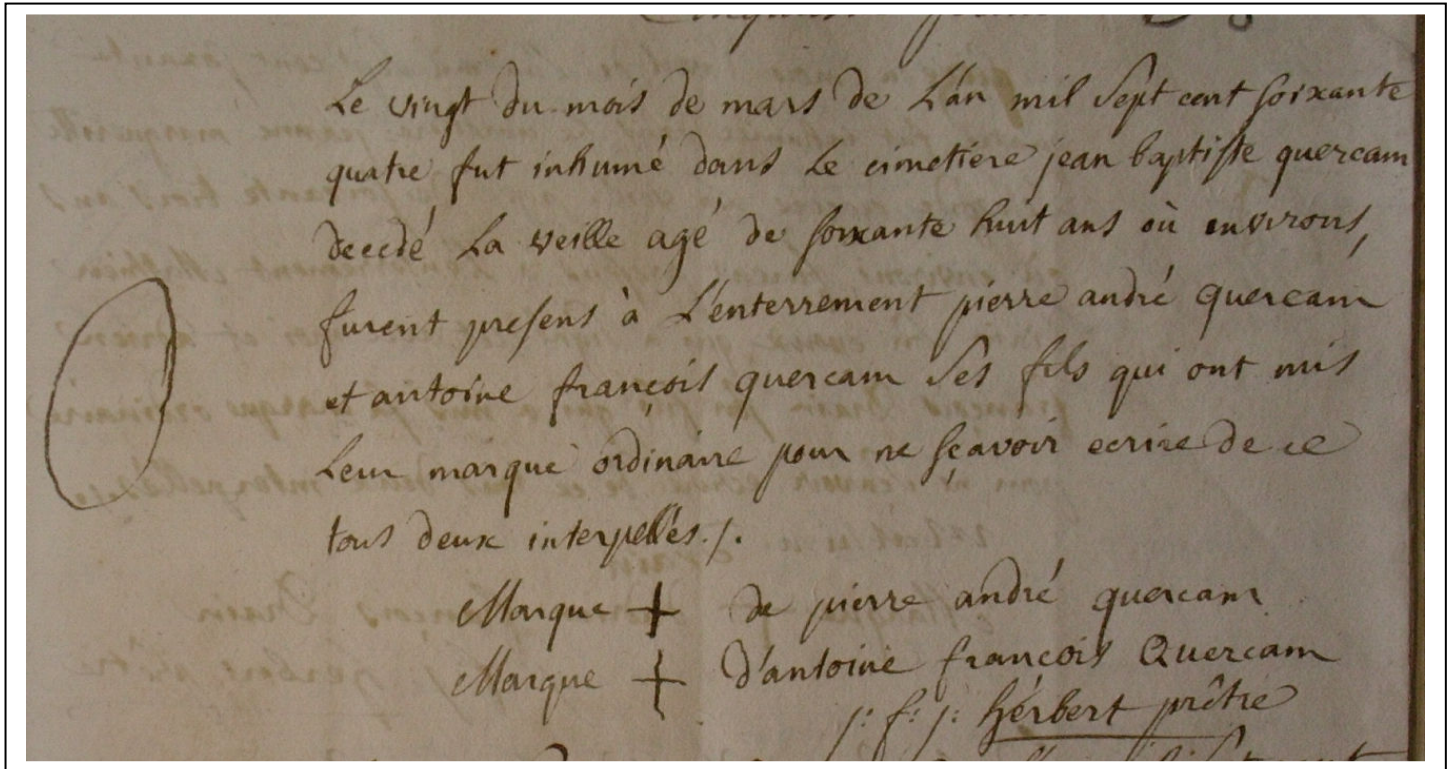 Le vingt du mois de mars de L'an mil Sept cent soixante
quatre fut inhumé dans Le cimetiere jean baptiste quercam
decedé La veille agé de soixante huit ans où environs,
furent presens à L'enterrement pierre andré quercam
et antoine françois quercam Ses fils qui ont mis
Leur marque ordinaire pour ne scavoir ecrire de ce
tous deux interpellés./.
Marque + de pierre andré quercam
Marque + d'antoine francois Quercam
j: f: j: hérbert prêtre